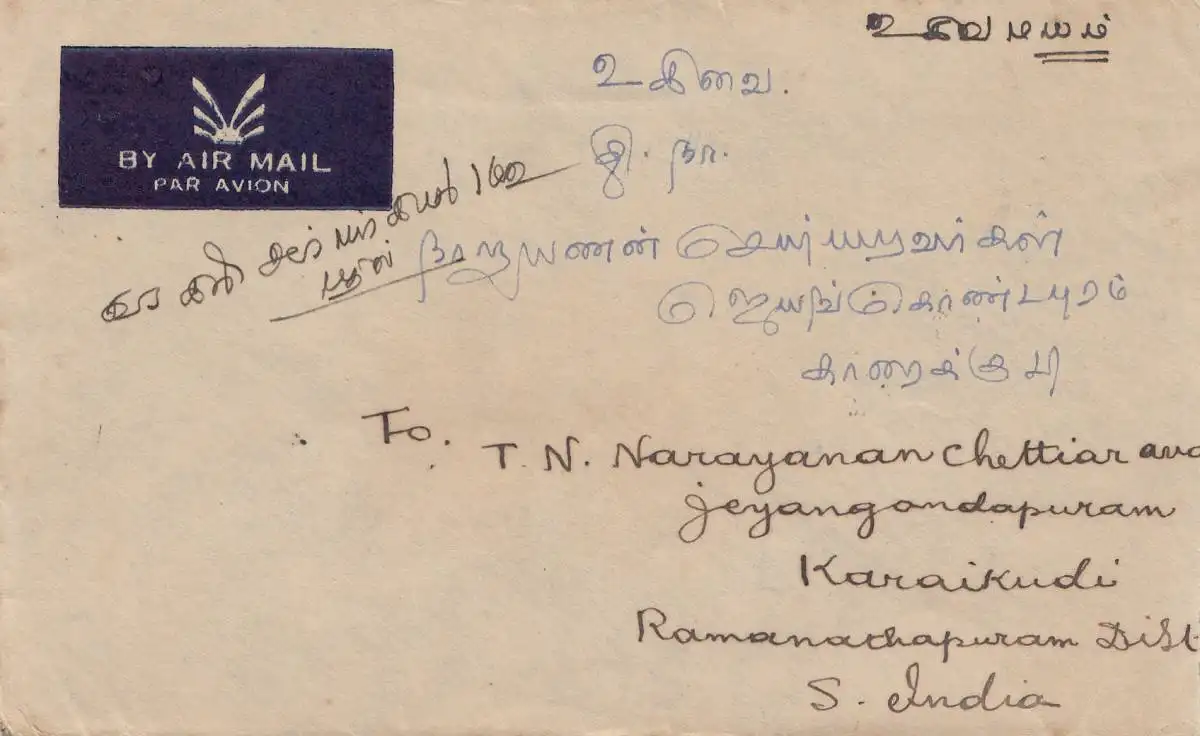 BY AIR MAIL
PAR AVION
உ சிவமயம்
உ சிவை.
தி. நா.
நாராயணன் செட்டியாரவர்கள்
ஜெயங்கொண்டபுரம்
காரைக்குடி
To.
T. N. Narayanan Chettiar ava
Jeyangondapuram
Karaikudi
Ramanathapuram Dist
S. India